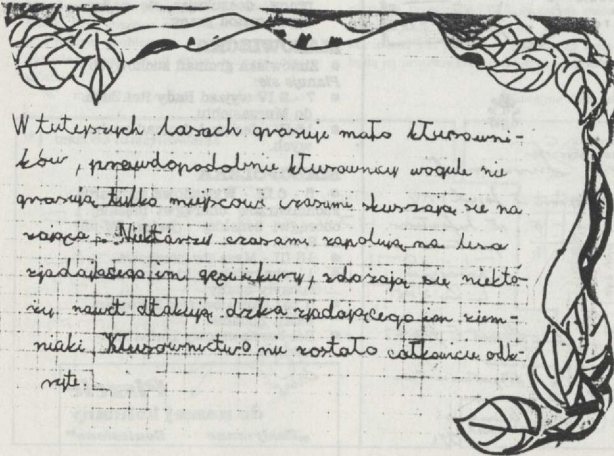 W tutejszych lasach grasuje mało kłusowni-
ków, prawdopodobnie kłusownicy wogule nie
grasują tylko miejscowi czasami skuszają się na
zająca. Niektórzy czasami zapolują na lisa
zjadającego im gęsi i kury, zdażają się niektó-
rzy nawet atakują dzika zjadającego im ziem-
niaki. Kłusownictwo nie zostało całkowicie odk-
ryte.